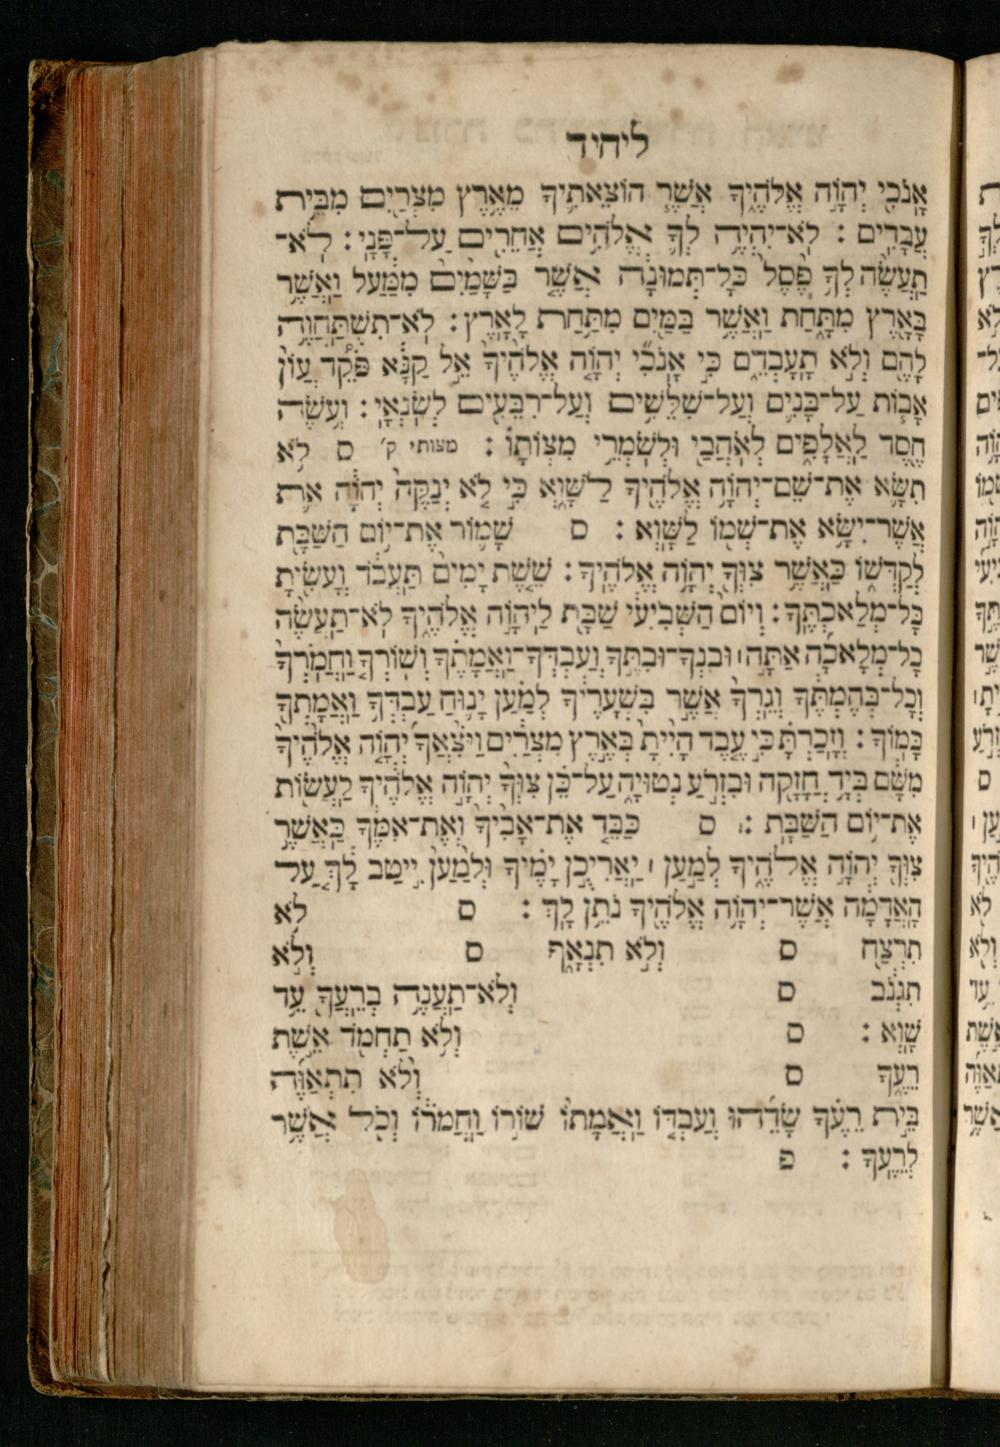 ליחיד
אָנֹכִי יְהוָה אֱלֹהֶיךָ אֲשֶׁר הוֹצֵאתִיךָ מֵאֶרֶץ מִצְרַיִם מִבֵּית
עֲבָדִים : לֹא־יִהְיֶה לְךָ אֱלֹהִים אֲחֵרִים עַל־פָּנָי : לֹא־
תַעֲשֶׂה לְךָ פֶסֶל כָּל־תְּמוּנָה אֲשֶׁר בַּשָּׁמַיִם מִמַּעַל וַאֲשֶׁר
בָּאָרֶץ מִתַּחַת וַאֲשֶׁר בַּמַּיִם מִתַּחַת לָאָרֶץ : לֹא־תִשְׁתַּחֲוֶה
לָהֶם וְלֹא תָעָבְדֵם כִּי אָנֹכִי יְהוָה אֱלֹהֶיךָ אֵל קַנָּא פֹּקֵד עֲוֹן
אָבוֹת עַל־בָּנִים וְעַל־שִׁלֵּשִׁים וְעַל־רִבֵּעִים לְשֹׂנְאָי : וְעֹשֶׂה
חֶסֶד לַאֲלָפִים לְאֹהֲבַי וּלְשֹׁמְרֵי מִצְוֹתָו : מצותי ק׳ ס לֹא
תִשָּׂא אֶת־שֵׁם־יְהוָה אֱלֹהֶיךָ לַשָּׁוְא כִּי לֹא יְנַקֶּה יְהוָה אֵת
אֲשֶׁר־יִשָּׂא אֶת־שְׁמוֹ לַשָּׁוְא : ס שָׁמוֹר אֶת־יוֹם הַשַּׁבָּת
לְקַדְּשׁוֹ כַּאֲשֶׁר צִוְּךָ יְהוָה אֱלֹהֶיךָ : שֵׁשֶׁת יָמִים תַּעֲבֹד וְעָשִׂיתָ
כָּל־מְלַאכְתֶּךָ : וְיוֹם הַשְּׁבִיעִי שַׁבָּת לַיהוָה אֱלֹהֶיךָ לֹא־תַעֲשֶׂה
כָל־מְלָאכָה אַתָּה׀ וּבִנְךָ־וּבִתֶּךָ וְעַבְדְּךָ־וַאֲמָתֶךָ וְשׁוֹרְךָ וַחֲמֹרְךָ
וְכָל־בְּהֶמְתֶּךָ וְגֵרְךָ אֲשֶׁר בִּשְׁעָרֶיךָ לְמַעַן יָנוּחַ עַבְדְּךָ וַאֲמָתְךָ
כָּמוֹךָ : וְזָכַרְתָּ כִּי עֶבֶד הָיִיתָ בְּאֶרֶץ מִצְרַיִם וַיֹּצִאֲךָ יְהוָה אֱלֹהֶיךָ
מִשָּׁם בְּיָד חֲזָקָה וּבִזְרֹעַ נְטוּיָה עַל־כֵּן צִוְּךָ יְהוָה אֱלֹהֶיךָ לַעֲשׂוֹת
אֶת־יוֹם הַשַּׁבָּת : ס כַּבֵּד אֶת־אָבִיךָ וְאֶת־אִמֶּךָ כַּאֲשֶׁר
צִוְּךָ יְהוָה אֱלֹהֶיךָ לְמַעַן ׀ יַאֲרִיכֻן יָמֶיךָ וּלְמַעַן יִיטַב לָךְ עַל
הָאֲדָמָה אֲשֶׁר־יְהוָה אֱלֹהֶיךָ נֹתֵן לָךְ : ס לֹא
תִרְצַח ס וְלֹא תִנְאָף ס וְלֹא
תִגְנֹב ס וְלֹא־תַעֲנֶה בְרֵעֲךָ עֵד
שָׁוְא : ס וְלֹא תַחְמֹד אֵשֶׁת
רֵעֶךָ ס וְלֹא תִתְאַוֶּה
בֵּית רֵעֶךָ שָׂדֵהוּ וְעַבְדּוֹ וַאֲמָתוֹ שׁוֹרוֹ וַחֲמֹרוֹ וְכֹל אֲשֶׁר
לְרֵעֶךָ : פ